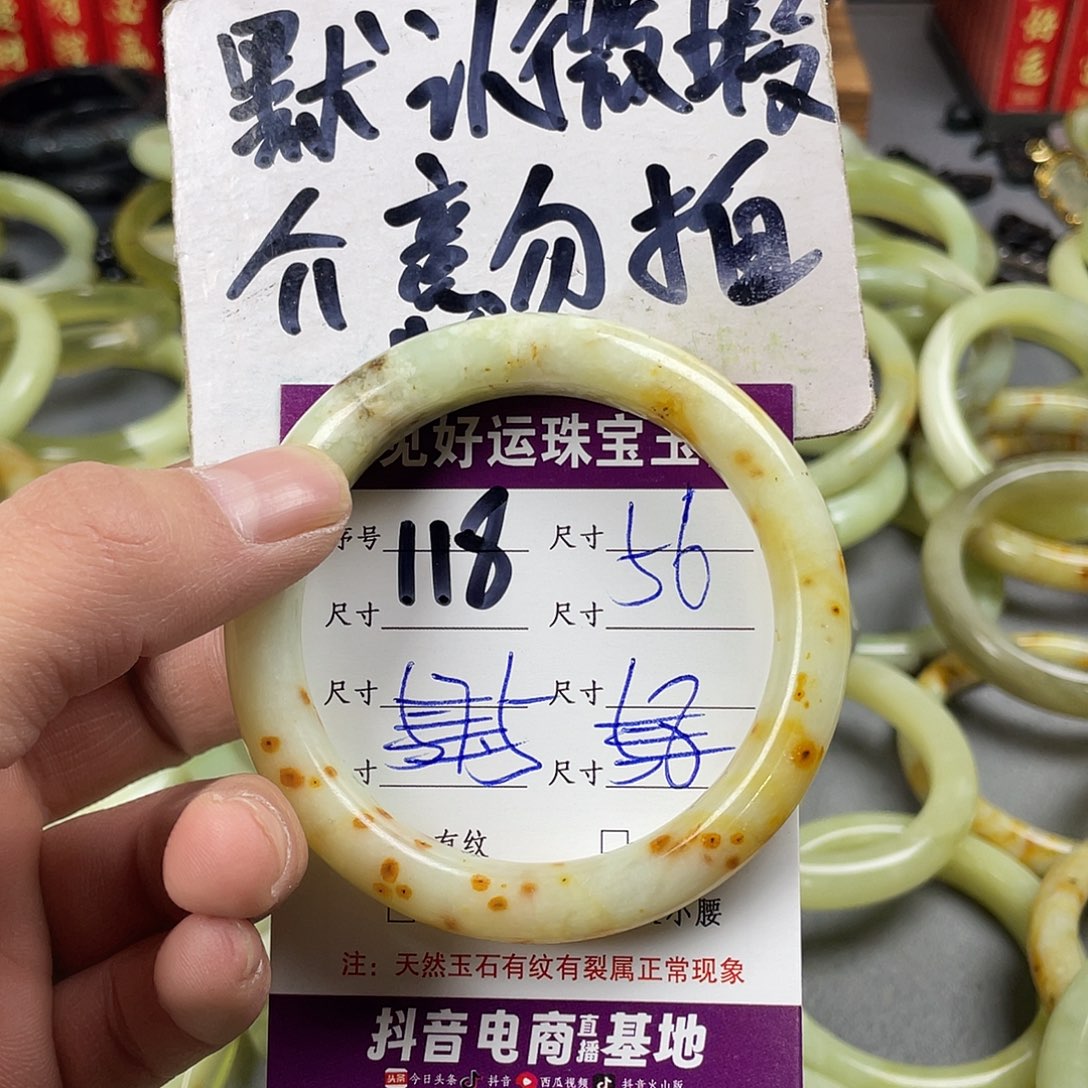 默认微瑕
介意勿拍
见好运珠宝玉
序号 118 尺寸 56
尺寸 尺寸
尺寸 尺寸
寸 尺寸
有纹
小腰
注：天然玉石有纹有裂属正常现象
抖音电商直播基地
头条 今日头条 抖音 西瓜视频 抖音火山版
好运